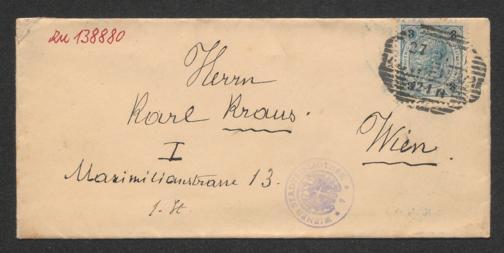 zu 138880
Herrn
Karl Kraus.
I
Wien.
Maximilianstrasse 13.
1. St.
3 3
27